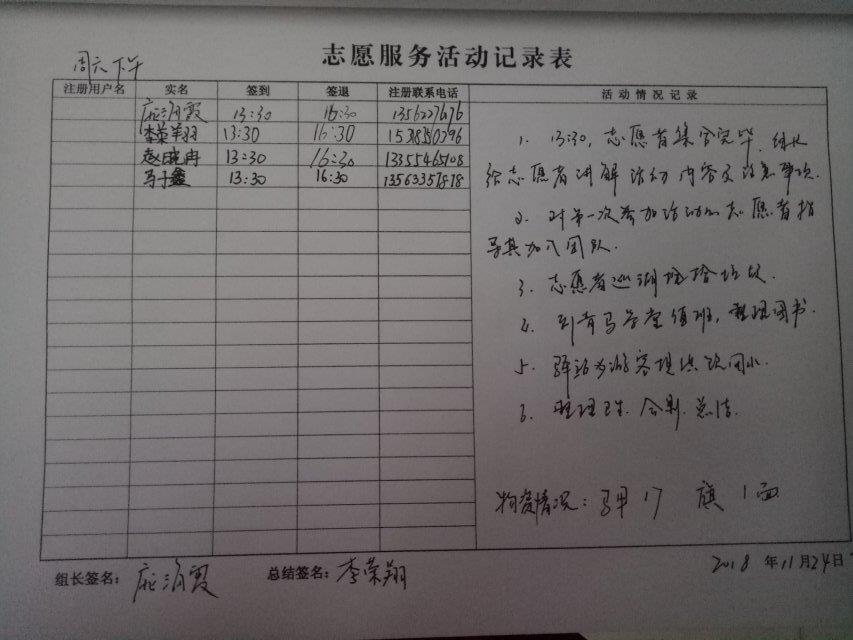 志愿服务活动记录表
周六下午
注册用户名 实名 签到 签退 注册联系电话 活动情况记录
庞润霞 13:30 16:30 1356227676
李荣翔 13:30 16:30 15318350796
赵晓冉 13:30 16:30 13355465108
马子鑫 13:30 16:30 13563357878
1. 13:30，志愿者集合完毕，组长
给志愿者讲解活动内容及注意事项.
2. 对第一次参加活动的志愿者指
导其加入团队.
3. 志愿者巡湖捡拾垃圾.
4. 到青马学堂值班，整理图书.
5. 驿站为游客提供饮用水.
6. 整理卫生.合影.总结.
物资情况： 17 旗1面
组长签名：庞润霞 总结签名：李荣翔 2018年11月24日